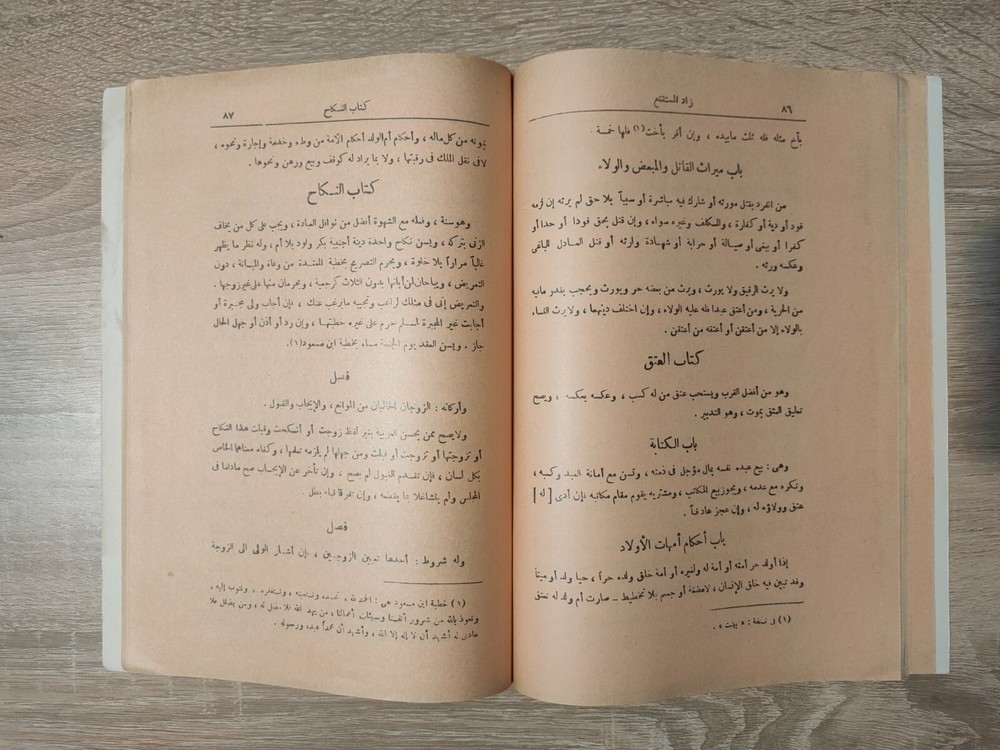 ٨٦
زاد المستقنع
بأخ مثله فله ثلث مابيده ، وإن أقر بأخت(١) فلها خمسة .
باب ميراث القاتل والمبعض والولاء
من انفرد بقتل مورثه أو شارك فيه مباشرة أو سبباً بلا حق لم يرثه إن لزمه
قود أو دية أو كفارة ، والمكلف وغيره سواء ، وإن قتل بحق قودا أو حدا أو
كفرا أو ببغى أو صيالة أو حرابة أو شهادة وارثه أو قتل العادل الباغى
وعكسه ورثه .
ولا يرث الرقيق ولا يورث ، ويرث من بعضه حر ويورث ويحجب بقدر مافيه
من الحرية ، ومن أعتق عبدا فله عليه الولاء ، وإن اختلف دينهما ، ولا يرث النساء
بالولاء إلا من أعتقن أو أعتقه من أعتقن .
كتاب العتق
وهو من أفضل القرب ويستحب عتق من له كسب ، وعكسه بعكسه ، ويصح
تعليق العتق بموت ، وهو التدبير .
باب الكتابة
وهى : بيع عبده نفسه بمال مؤجل فى ذمته ، وتسن مع أمانة العبد وكسبه ،
وتكره مع عدمه ، ويجوز بيع المكاتب ، ومشتريه يقوم مقام مكاتبه فإن أدى [ له ]
عتق وولاؤه له ، وإن عجز عاد قناً .
باب أحكام أمهات الأولاد
إذا أولد حر أمته أو أمة له ولغيره أو أمة خلق ولده حراً ، حيا ولد أو ميتاً
وقد تبين فيه خلق الإنسان ، لامضغة أو جسم بلا تخطيط – صارت أم ولد له تعتق
(١) فى نسخة : « بنت » .
كتاب النكاح
٨٧
بموته من كل ماله ، وأحكام أم الولد أحكام الأمة من وطء وخدمة وإجارة ونحوه ،
لافى نقل الملك فى رقبتها ، ولا بما يراد له كوقف وبيع ورهن ونحوها .
كتاب النكاح
وهو سنة ، وفعله مع الشهوة أفضل من نوافل العبادة ، ويجب على كل من يخاف
الزنى بتركه ، ويسن نكاح واحدة دينة أجنبية بكر ولود بلا أم ، وله نظر ما يظهر
غالباً مراراً بلا خلوة ، ويحرم التصريح بخطبة المعتدة من وفاة والمبانة ، دون
التعريض ، ويباحان لمن أبانها بدون الثلاث كرجعية ، ويحرمان منها على غير زوجها .
والتعريض إنى فى مثلك لراغب وتجيبه مايرغب عنك ، فإن أجاب ولى مجبرة أو
أجابت غير المجبرة لمسلم حرم على غيره خطبتها ، وإن رد أو أذن أو جهل الحال
جاز . ويسن العقد يوم الجمعة مساء بخطبة ابن مسعود(١).
فصل
وأركانه : الزوجان الخاليان من الموانع ، والإيجاب والقبول .
ولا يصح ممن يحسن العربية بغير لفظ زوجت أو أنكحت وقبلت هذا النكاح
أو تزوجتها أو تزوجت أو قبلت ومن جهلها لم يلزمه تعلمها ، وكفاه معناهما الخاص
بكل لسان ، فإن تقدم القبول لم يصح ، وإن تأخر عن الإيجاب صح ماداما فى
المجلس ولم يتشاغلا بما يقطعه ، وإن تفرقا قبله بطل .
فصل
وله شروط : أحدها تعيين الزوجين ، فإن أشار الولى الى الزوجة
(١) خطبة ابن مسعود هى : الحمد لله ، نحمده ونستعينه ، ونستغفره . ونتوب إليه ،
ونعوذ بالله من شرور أنفسنا وسيئات أعمالنا ، من يهد الله فلا مضل له ، ومن يضلل فلا
هادى له أشهد أن لا إله إلا الله ، وأشهد أن محمداً عبده ورسوله .